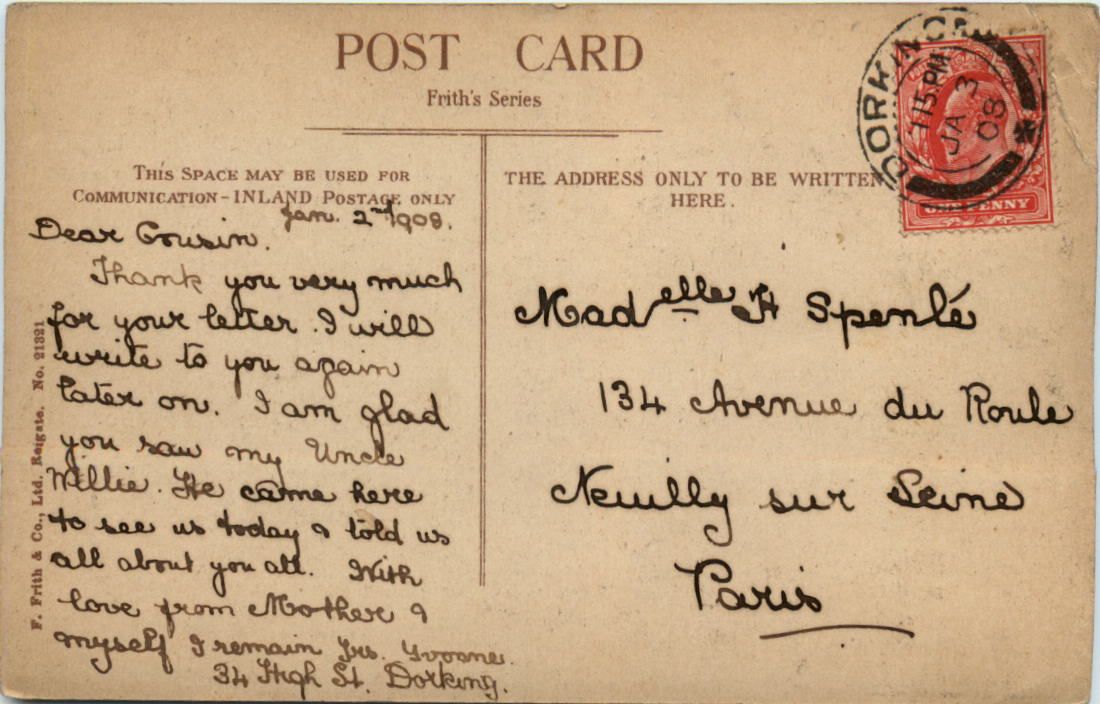 POST CARD
Frith's Series
THIS SPACE MAY BE USED FOR
COMMUNICATION - INLAND POSTAGE ONLY
Jan. 2nd 1908.
Dear Cousin.
Thank you very much
for your letter. I will
write to you again
later on. I am glad
you saw my Uncle
Willie. He came here
to see us today & told us
all about you all. With
love from Mother &
myself I remain Yrs. Yvonne.
34 High St. Dorking.
F. Frith & Co., Ltd. Reigate. No. 21321
THE ADDRESS ONLY TO BE WRITTEN
HERE.
Madelle H Spenlé
134 Avenue du Roule
Neuilly sur Seine
Paris
DORKING
115 PM
JA 3
08
ONE PENNY